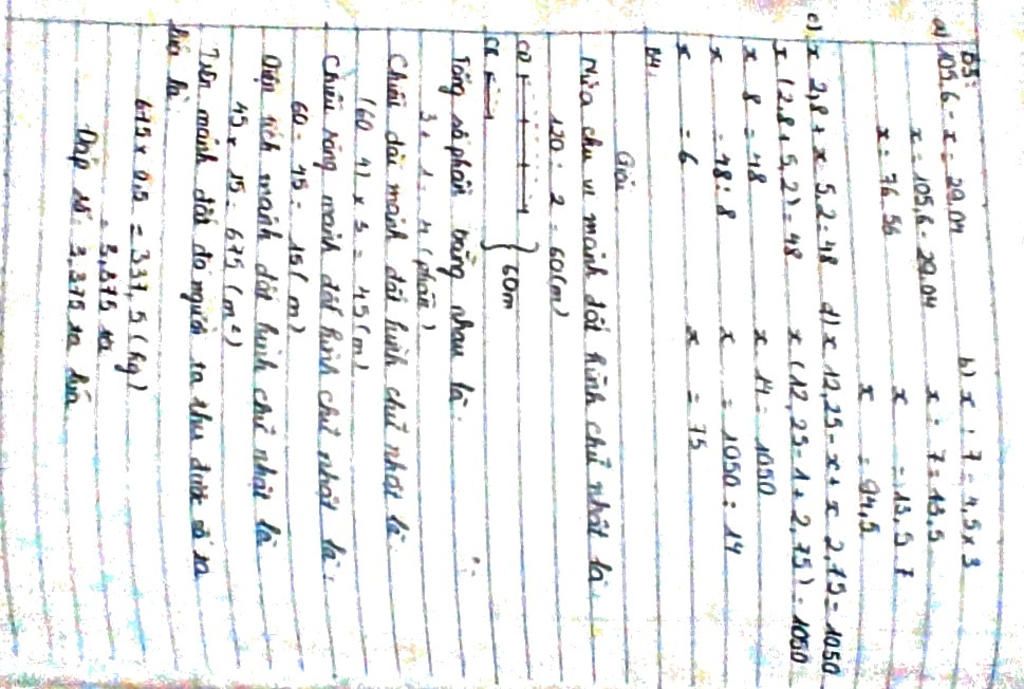 B3:
a) 105,6 - x = 29,04
x = 105,6 - 29,04
x = 76,56
b) x : 7 = 4,5 x 3
x : 7 = 13,5
x = 13,5 7
x = 94,5
c) x 2,8 + x 5,2 = 48
x (2,8 + 5,2) = 48
x 8 = 48
x = 48 : 8
x = 6
d) x 12,25 - x + x 2,75 = 1050
x (12,25 - 1 + 2,75) = 1050
x 14 = 1050
x = 1050 : 14
x = 75
B4:
Giải
Nửa chu vi mảnh đất hình chữ nhật là:
120 : 2 = 60 (m)
CD
60m
CR
Tổng số phần bằng nhau là:
3 + 1 = 4 (phần)
Chiều dài mảnh đất hình chữ nhật là:
(60 4) x 3 = 45 (m)
Chiều rộng mảnh đất hình chữ nhật là:
60 - 45 = 15 (m)
Diện tích mảnh đất hình chữ nhật là
45 x 15 = 675 (m²)
Trên mảnh đất đó người ta thu được số tạ
là:
675 x 0,5 = 337,5 (kg)
= 3,375 tạ
Đáp số: 3,375 tạ